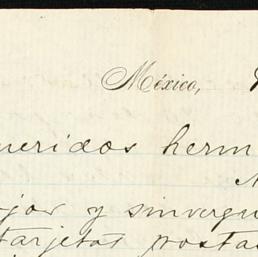 México,
ueridos herm
jor y sinvergu
tarjetas posta